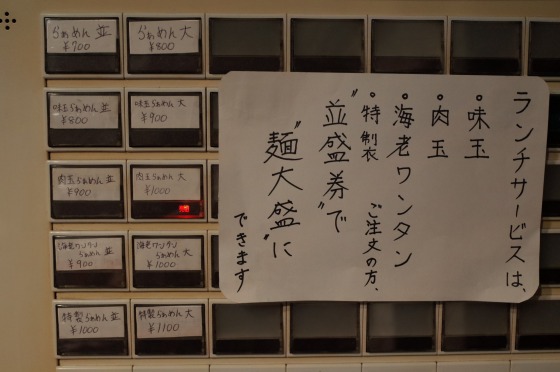 らぁめん 並
¥700
らぁめん 大
¥800
味玉らぁめん 並
¥800
味玉らぁめん 大
¥900
肉玉らぁめん 並
¥900
肉玉らぁめん 大
¥1000
海老ワンタン
らぁめん 並
¥900
海老ワンタン
らぁめん 大
¥1000
特製らぁめん 並
¥1000
特製らぁめん 大
¥1100
ランチサービスは、
•味玉
•肉玉
•海老ワンタン
•特製 ご注文の方、
"並盛券"で
"麺大盛"に
できます